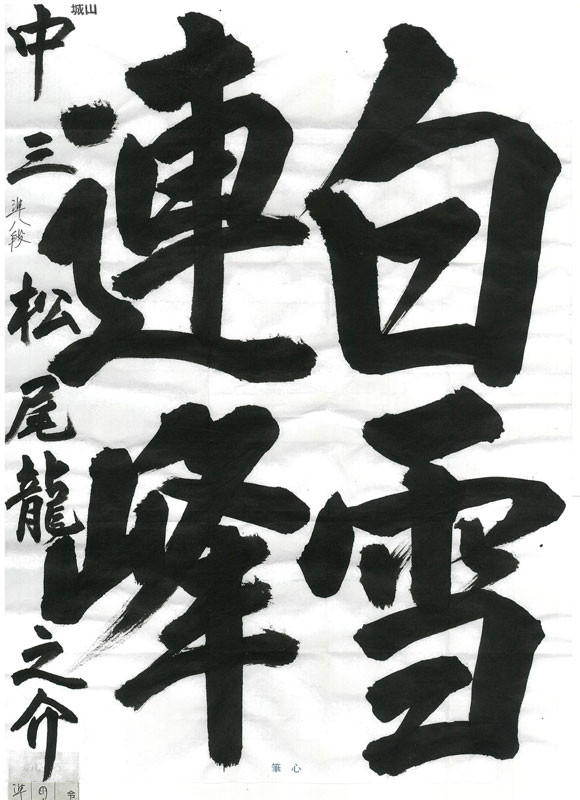 白雪
連峰
中三 準八段 松尾龍之介
城山
心筆